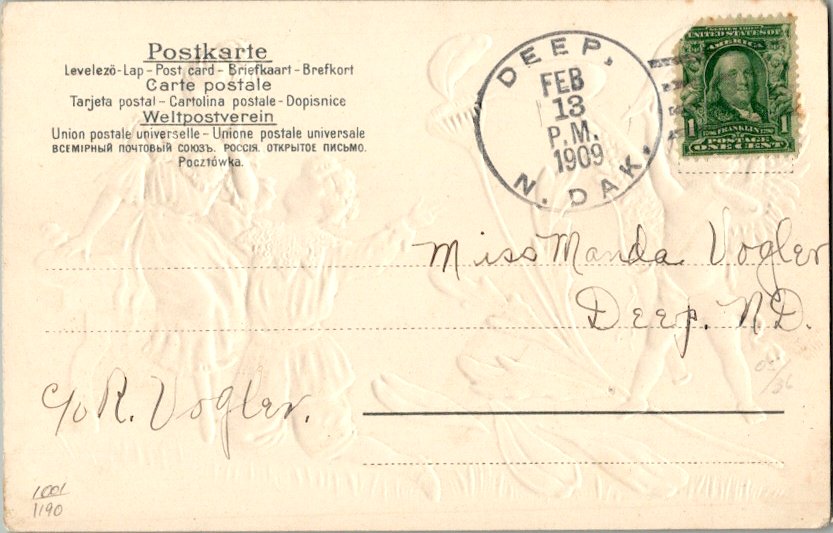 Postkarte
Levelező-Lap – Post card – Briefkaart – Brefkort
Carte postale
Tarjeta postal – Cartolina postale – Dopisnice
Weltpostverein
Union postale universelle – Unione postale universale
ВСЕМІРНЫЙ ПОЧТОВЫЙ СОЮЗЪ. РОССІЯ. ОТКРЫТОЕ ПИСЬМО.
Pocztówka.
DEEP,
FEB
13
P.M.
1909
N. DAK.
SERIES 1902
UNITED STATES OF
AMERICA
1706 FRANKLIN 1790
1 1
POSTAGE
ONE CENT
Miss Manda Vogler
Deep. ND.
c/o R. Vogler.
1001
1190